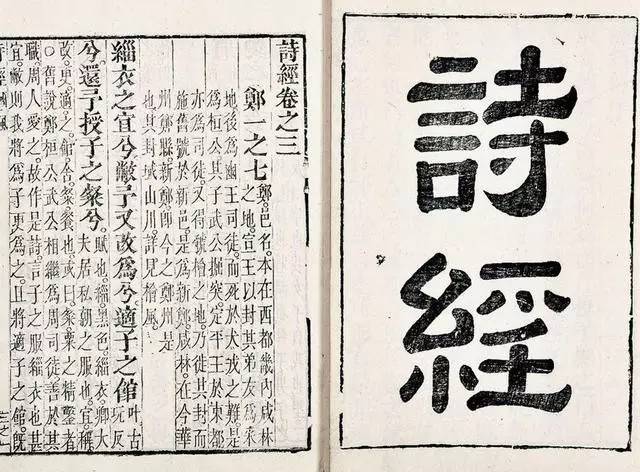 詩經
詩經卷之三
鄭一之七
鄭邑名。本在西都畿內咸林
之地。宣王以封其弟友為采
地。後為幽王司徒。而死於犬戎之難。是
為桓公。其子武公掘突。定平王於東都。
亦為司徒。又得虢檜之地。乃徙其封。而
施舊號於新邑。是為新鄭。咸林。在今華
州鄭縣。新鄭。即今之鄭州是
也。其封域山川。詳見檜風。
緇衣之宜兮。敝予又改為兮。適子之館
叶古
玩反
兮。還予授子之粲兮。
賦也。緇。黑色。緇衣。卿大
夫居私朝之服也。宜。稱。
改。更。適。之。館。舍。粲。餐也。或曰。粲。粟之精鑿者。
○舊說。鄭桓公武公。相繼為周司徒。善於其
職。周人愛之。故作是詩。言子之服緇衣也甚
宜。敝則我將為子更為之。且將適子之館。既